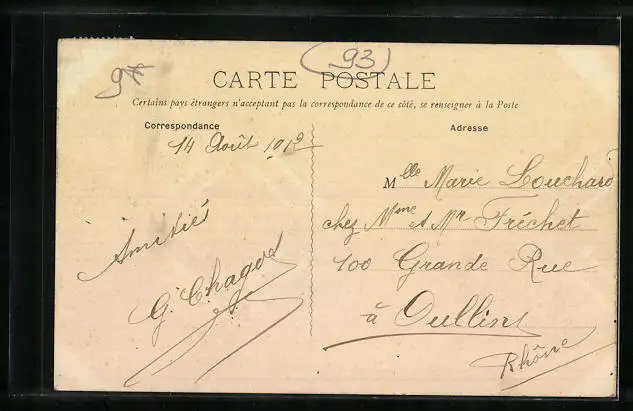 (93)
CARTE POSTALE
Certains pays étrangers n'acceptant pas la correspondance de ce côté, se renseigner à la Poste
Correspondance
14 Août 1912
Amitiés
G. Chagot
Adresse
Mlle Marie Louchard
chez Mme & Mr Fréchet
100 Grande Rue
à Oullins
Rhône